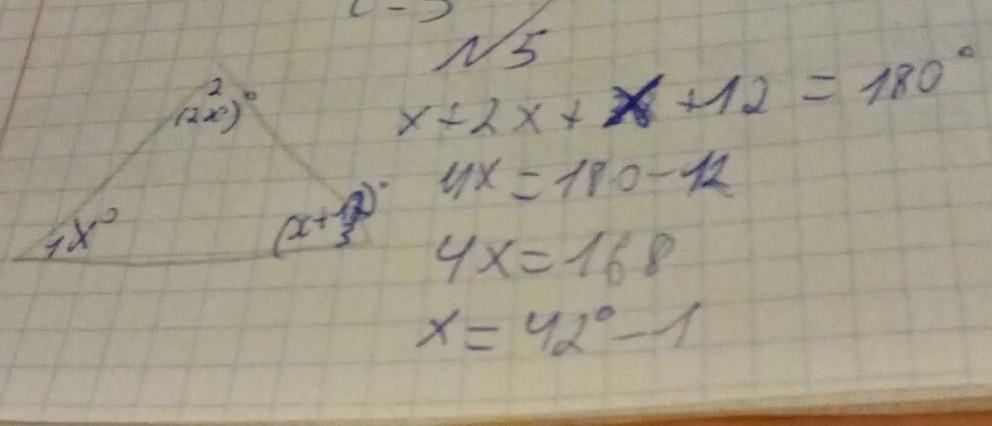 N5
2
(2x)°
x + 2x + x + 12 = 180°
4x = 180 - 12
1 x°
(x+12)°
3
4x = 168
x = 42° - 1